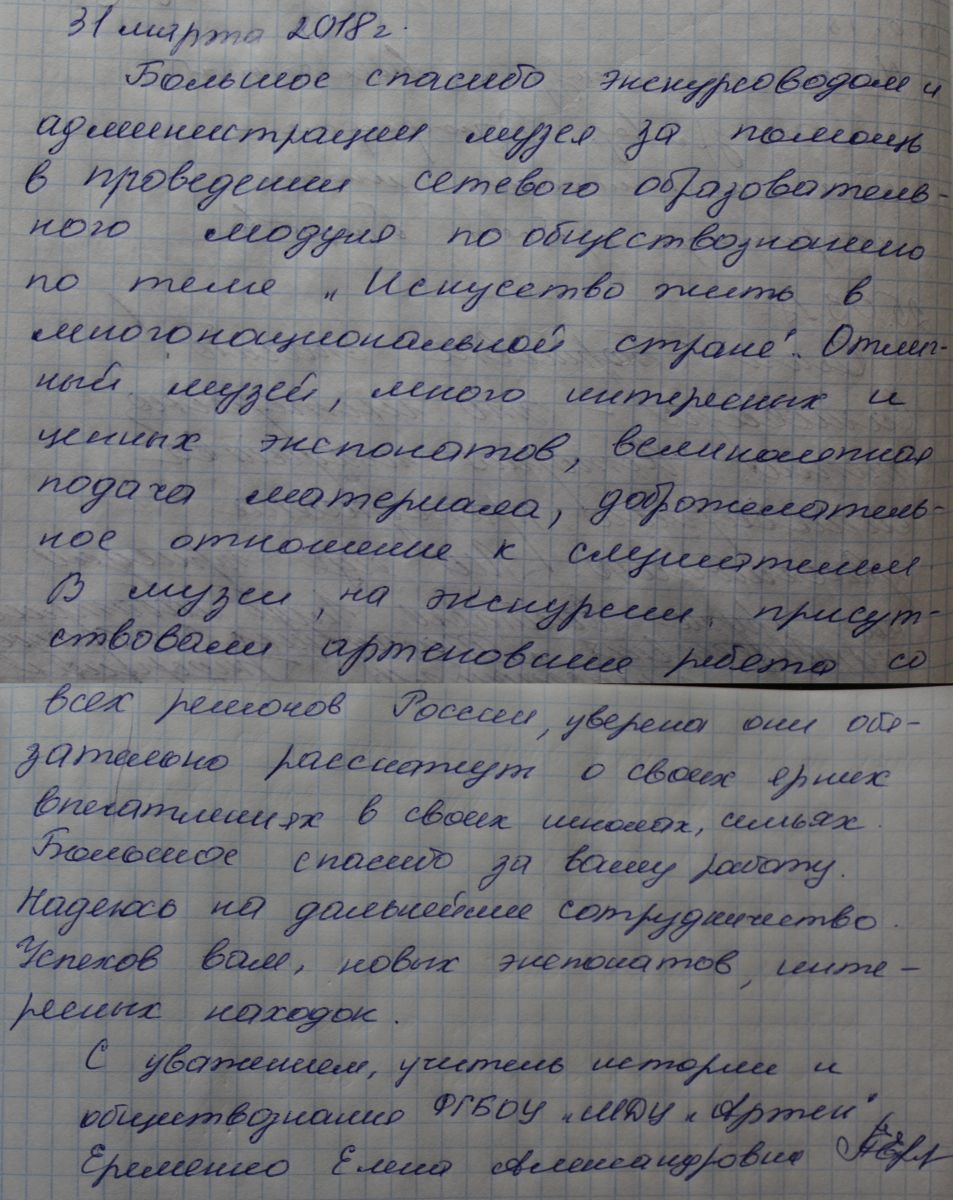 31 марта 2018 г.
Большое спасибо экскурсоводам и
администрации музея за помощь
в проведении сетевого образователь-
ного модуля по обществознанию
по теме „Искусство жить в
многонациональной стране". Отлич-
ный музей, много интересных и
ценных экспонатов, великолепная
подача материала, доброжелатель-
ное отношение к слушателям.
В музее, на экскурсии, присут-
ствовали артековские ребята со
всех регионов России, уверена они обя-
зательно расскажут о своих ярких
впечатлениях в своих школах, семьях.
Большое спасибо за вашу работу.
Надеюсь на дальнейшее сотрудничество.
Успехов вам, новых экспонатов, инте-
ресных находок.
С уважением, учитель истории и
обществознания ФГБОУ „МДЦ „Артек"
Еременко Елена Александровна